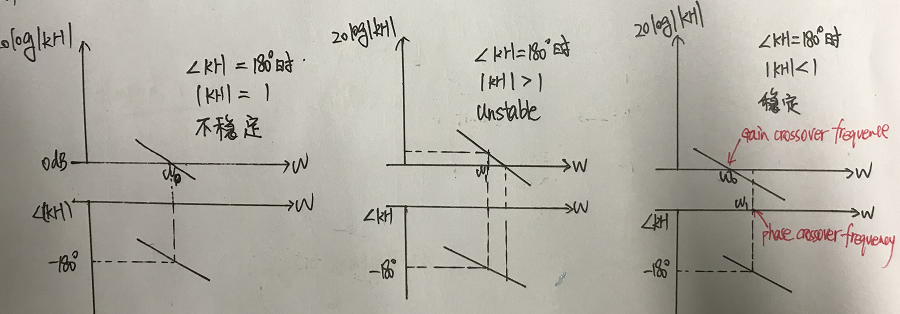 20log|kH|
∠kH = 180°时
|kH| = 1
不稳定
0dB
ω₀
W
∠(kH)
W
-180°
20log|kH|
∠kH=180°时
|kH|>1
Unstable
W
∠kH
W
-180°
20log|kH|
∠kH=180°时
|kH|<1
稳定
gain crossover frequence
ω₀
W
ω₁
W
∠kH
phase crossover-frequency
-180°